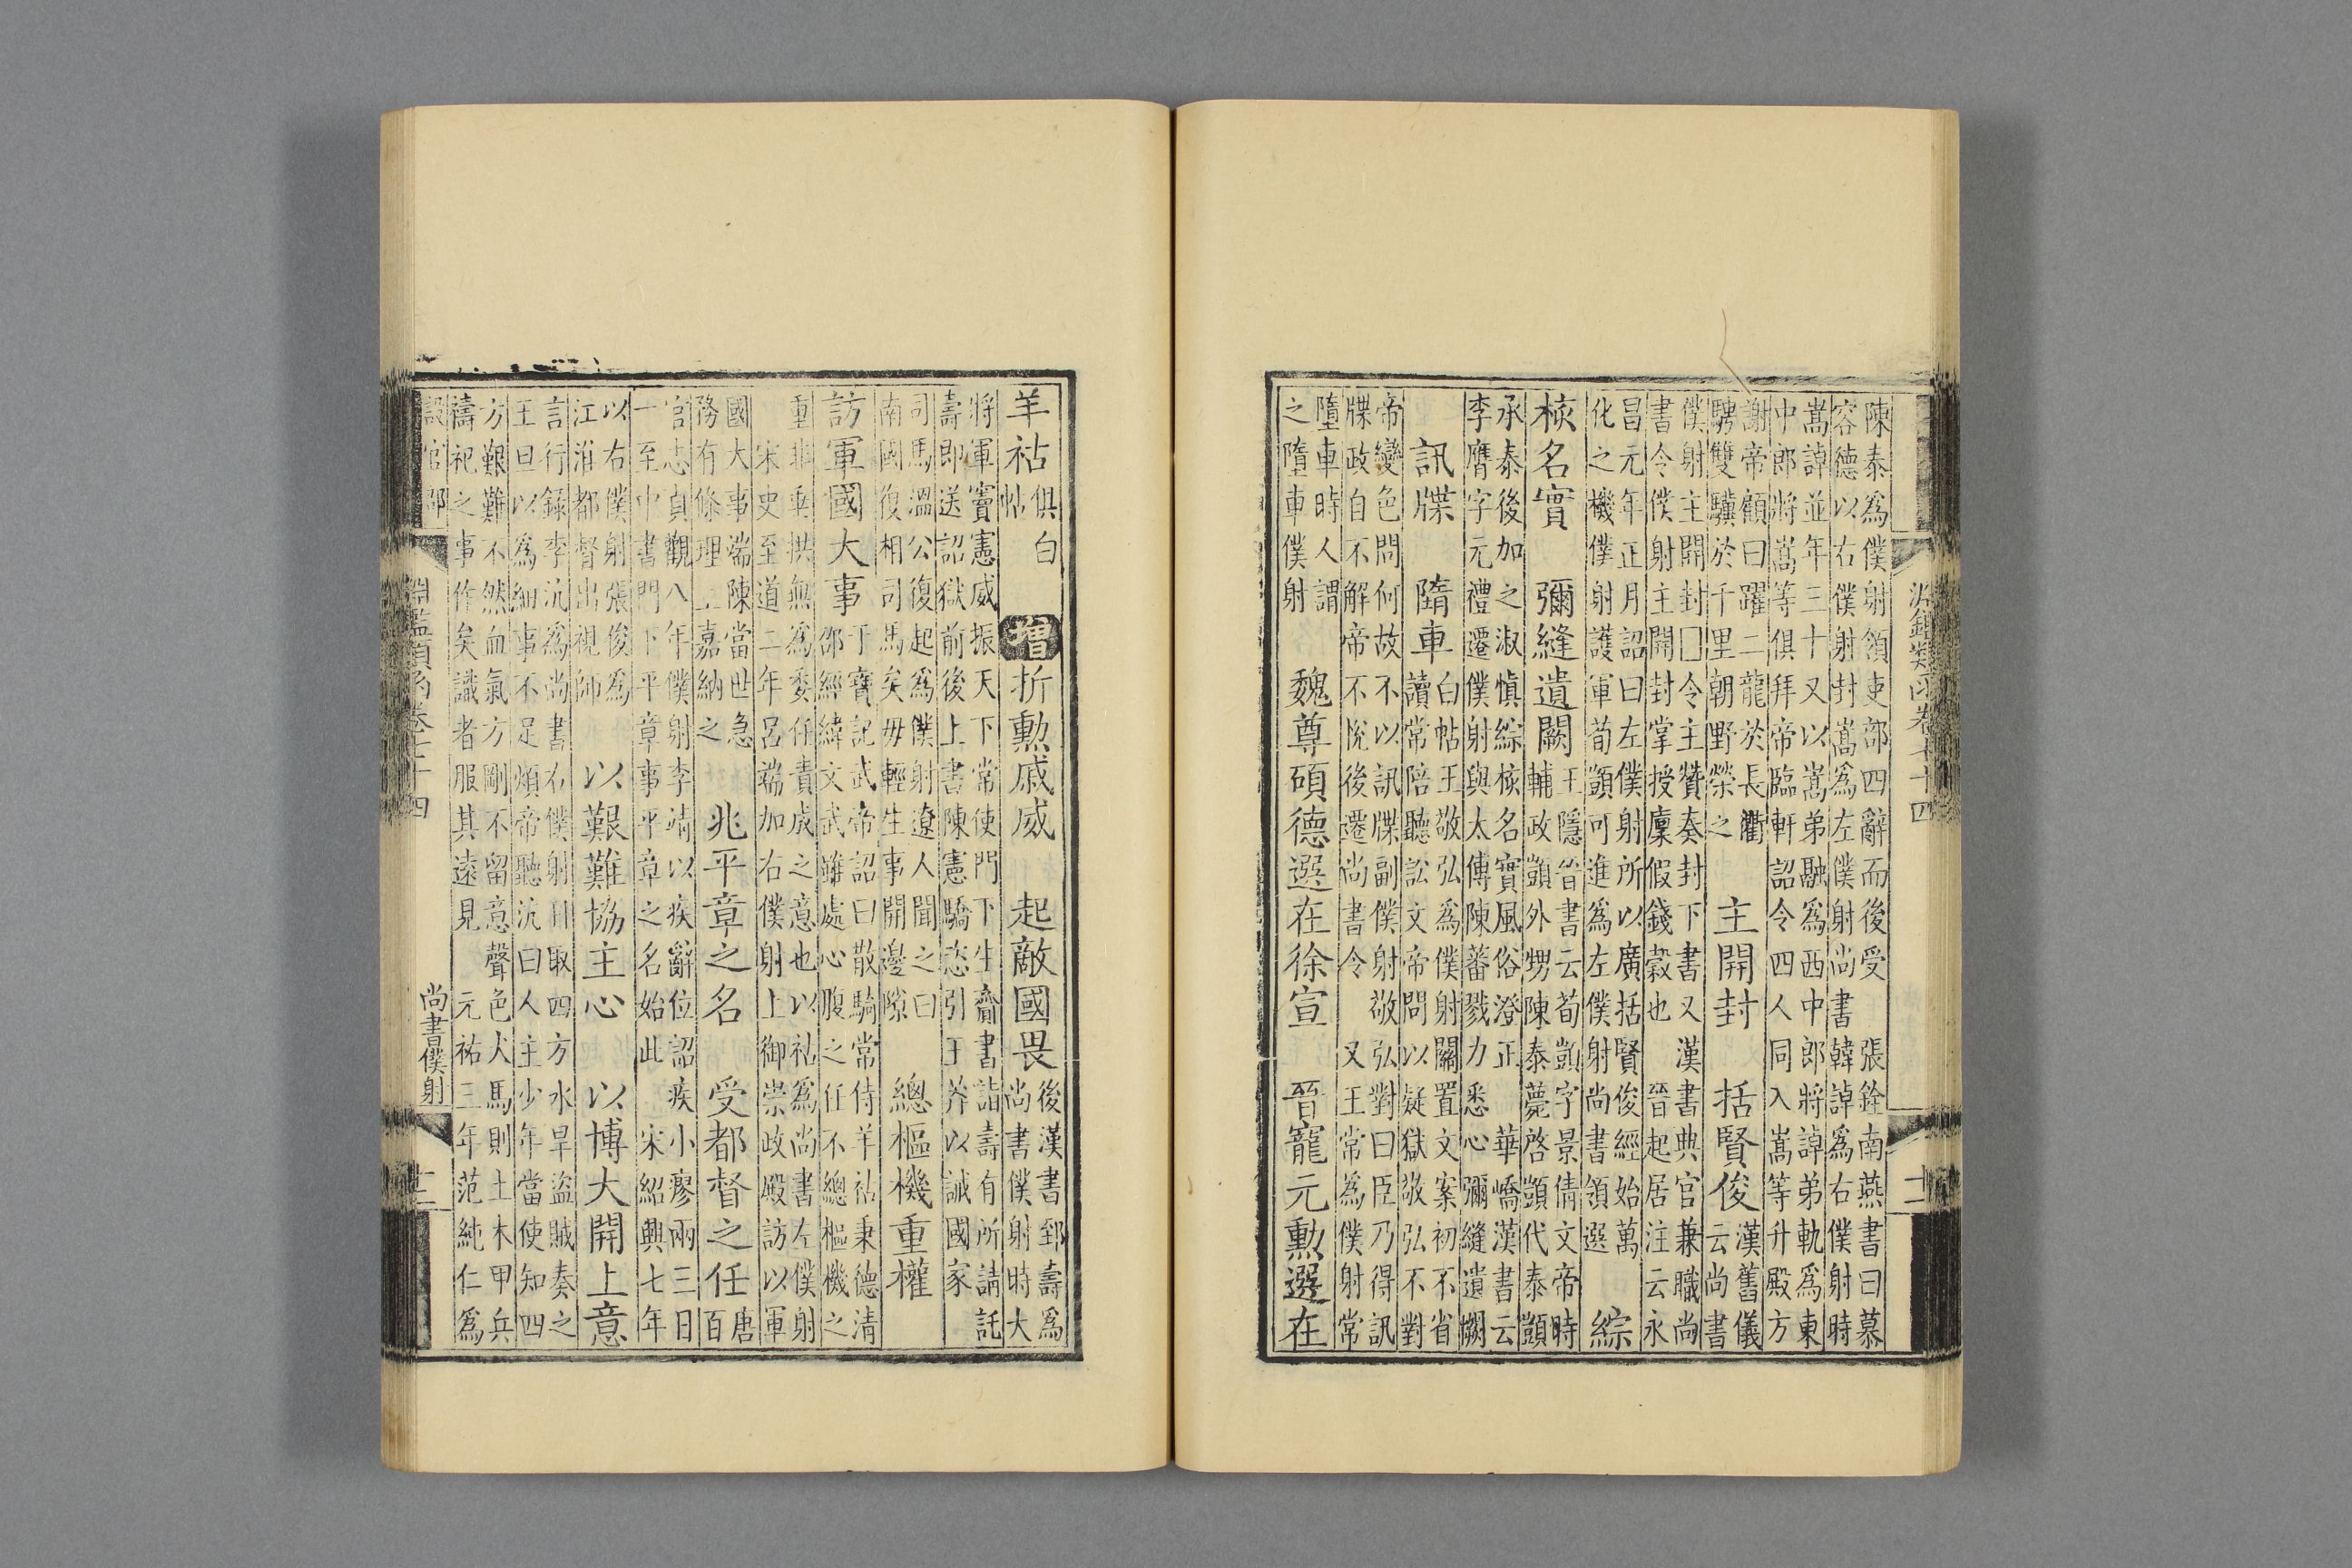 淵鑑類函卷七十四
陳泰為僕射領吏部四辭而後受 張銓南燕書曰慕
容德以右僕射封嵩為左僕射尚書韓𧨳為右僕射時
嵩𧨳並年三十又以嵩弟融為西中郎將𧨳弟軌為東
中郎將嵩等俱拜帝臨軒詔令四人同入嵩等升殿方
謝帝顧曰躍二龍於長衢
騁雙驥於千里朝野榮之
主開封 括賢俊
漢舊儀
云尚書
僕射主開封□令主贊奏封下書又 漢書典官兼職尚
書令僕射主開封掌授廩假錢穀也 晉起居注云永
昌元年正月詔曰左僕射所以廣括賢俊經始萬
化之機僕射護軍荀顗可進為左僕射尚書領選
綜
核名實 彌縫遺闕
王隱晉書云荀顗字景倩文帝時
輔政顗外甥陳泰薨啓顗代泰顗
承泰後加之淑慎綜核名實風俗澄正 華嶠漢書云
李膺字元禮遷僕射與太傅陳蕃戮力悉心彌縫遺闕
訊牒 隋車
白帖王敬弘為僕射關置文案初不省
讀常陪聽訟文帝問以疑獄敬弘不對
帝變色問何故不以訊牒副僕射敬弘對曰臣乃得訊
牒政自不解帝不悅後遷尚書令 又王常為僕射常
墮車時人謂
之墮車僕射
魏尊碩德選在徐宣 晉寵元勳選在
羊祜
俱白
帖
增 折勳戚威 起敵國畏
後漢書郅壽為
尚書僕射時大
將軍竇憲威振天下常使門下生齎書詣壽有所請託
壽即送詔獄前後上書陳憲驕恣引王莽以誡國家
司馬溫公復起為僕射遼人聞之曰
南國復相司馬矣毋輕生事開邊隙
總樞機重權
訪軍國大事
于寶記武帝詔曰散騎常侍羊祜秉德清
邵經緯文武雖處心腹之任不總樞機之
重非垂拱無為委任責成之意也以祜為尚書左僕射
宋史至道二年呂端加右僕射上御崇政殿訪以軍
國大事端陳當世急
務有條理上嘉納之
兆平章之名 受都督之任
唐
百
官志貞觀八年僕射李靖以疾辭位詔疾小瘳兩三日
一至中書門下平章事平章之名始此 宋紹興七年
以右僕射張俊為
江淮都督出視師
以艱難協主心 以博大開上意
言行錄李沆為尚書右僕射日取四方水旱盜賊奏之
王旦以為細事不足煩帝聽沆曰人主少年當使知四
方艱難不然血氣方剛不留意聲色犬馬則土木甲兵
禱祀之事作矣識者服其遠見 元祐三年范純仁為
設官部 淵鑑類函卷七十四 尚書僕射 十二